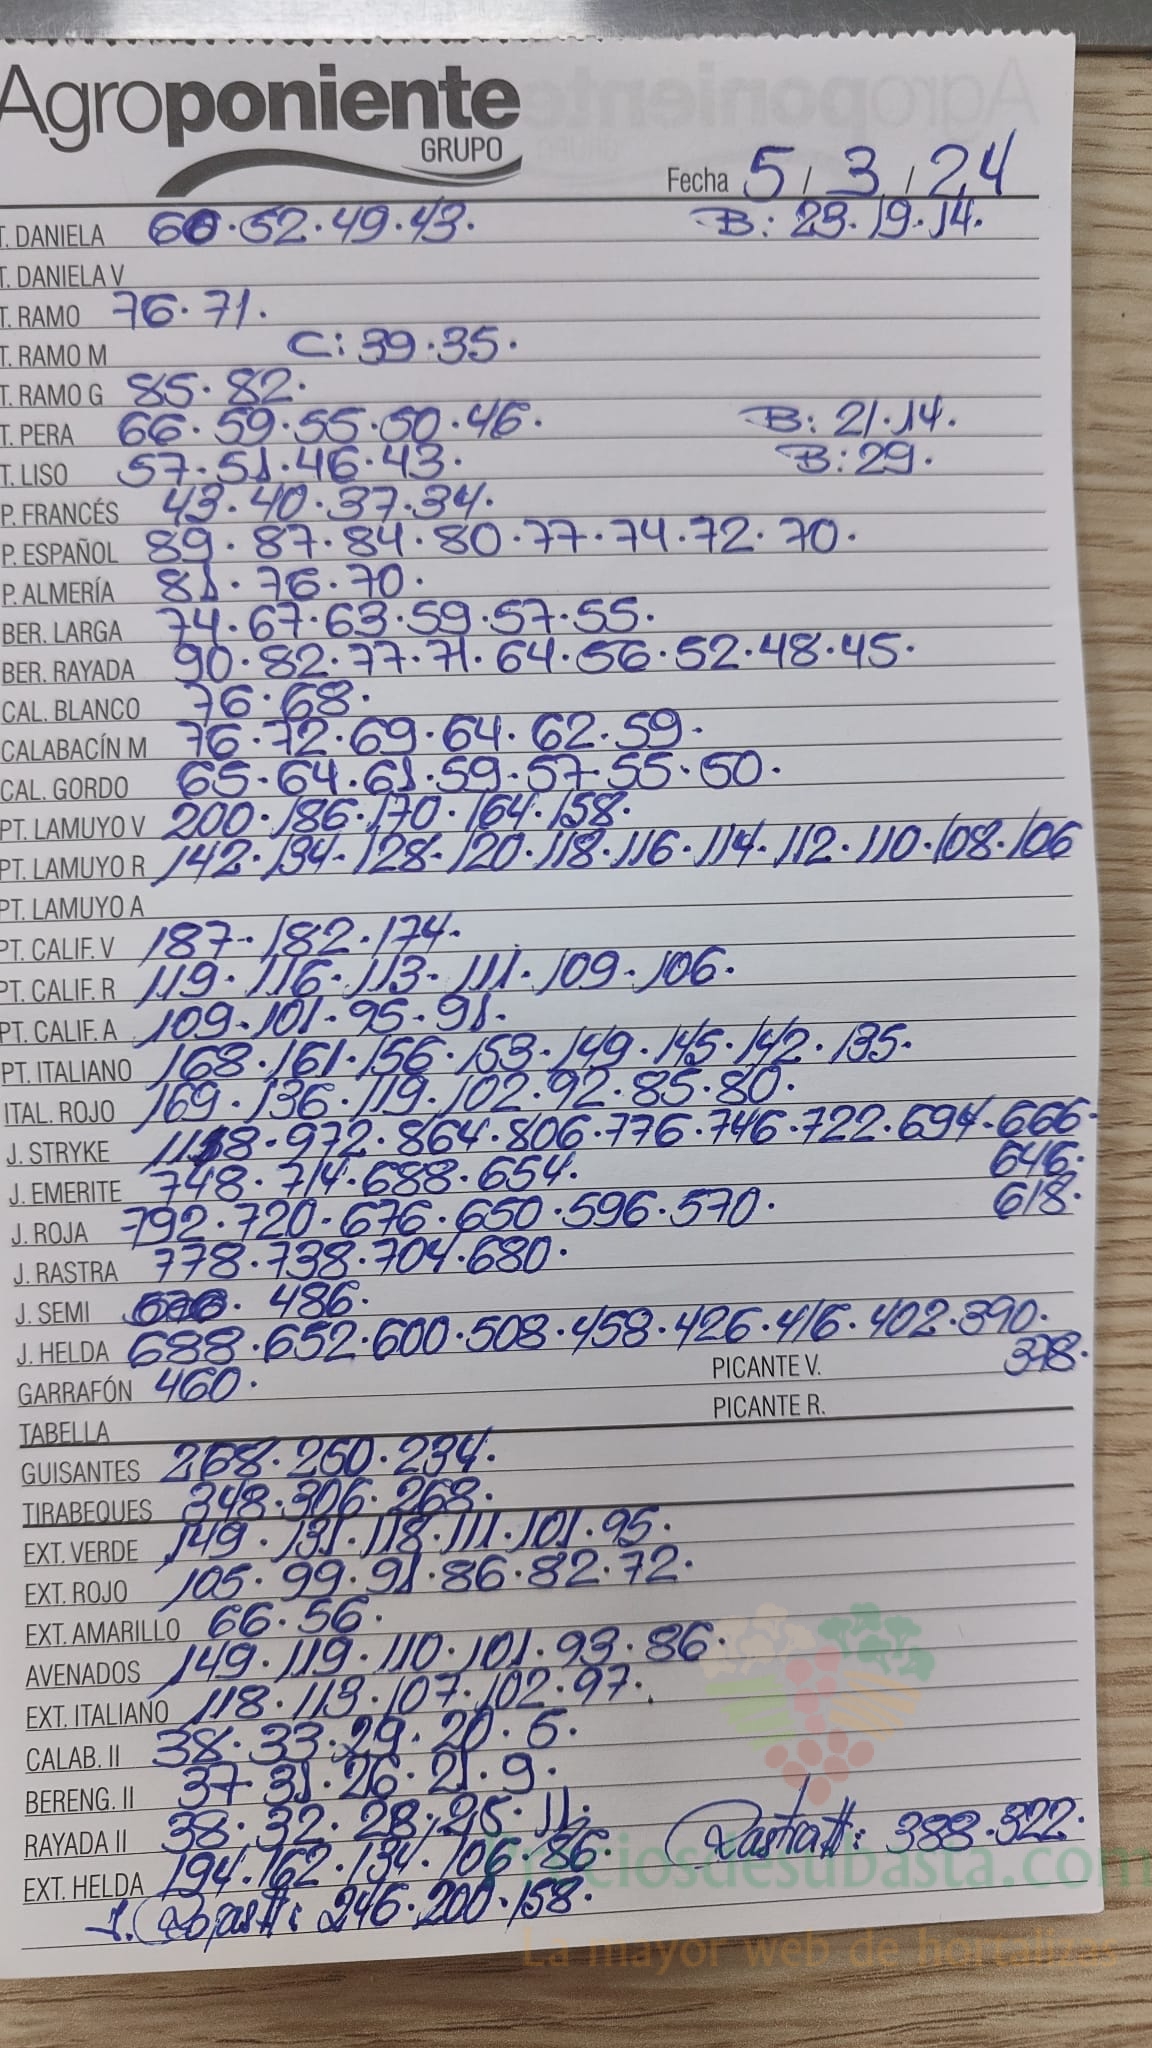 Agroponiente
GRUPO
Fecha 5/3/24
T. DANIELA 60.52.49.43. B: 23.19.14.
T. DANIELA V
T. RAMO 76.71.
T. RAMO M C: 39.35.
T. RAMO G 85.82.
T. PERA 66.59.55.50.46. B: 21.14.
T. LISO 57.51.46.43. B: 29.
P. FRANCÉS 43.40.37.34.
P. ESPAÑOL 89.87.84.80.77.74.72.70.
P. ALMERÍA 81.76.70.
BER. LARGA 74.67.63.59.57.55.
BER. RAYADA 90.82.77.71.64.56.52.48.45.
CAL. BLANCO 76.68.
CALABACÍN M 76.72.69.64.62.59.
CAL. GORDO 65.64.61.59.57.55.50.
PT. LAMUYO V 200.186.170.164.158.
PT. LAMUYO R 142.134.128.120.118.116.114.112.110.108.106
PT. LAMUYO A
PT. CALIF. V 187.182.174.
PT. CALIF. R 119.116.113.111.109.106.
PT. CALIF. A 109.101.95.91.
PT. ITALIANO 168.161.156.153.149.145.142.135.
ITAL. ROJO 169.136.119.102.92.85.80.
J. STRYKE 972.864.806.776.746.722.694.666.
646.
J. EMERITE 748.714.688.654.
618.
J. ROJA 792.720.676.650.596.570.
J. RASTRA 778.738.704.680.
J. SEMI 486.
J. HELDA 688.652.600.508.458.426.416.402.390.
378.
GARRAFÓN 460. PICANTE V.
TABELLA PICANTE R.
GUISANTES 268.250.234.
TIRABEQUES 348.306.268.
EXT. VERDE 149.131.118.111.101.95.
EXT. ROJO 105.99.91.86.82.72.
EXT. AMARILLO 66.56.
AVENADOS 149.119.110.101.93.86.
EXT. ITALIANO 118.113.107.102.97.
CALAB. II 38.33.29.20.6.
BERENG. II 37.31.26.21.9.
RAYADA II 38.32.28.25.11. Rastra II: 388.322.
EXT. HELDA 194.162.134.106.86.
J. Roja II: 246.200.158.
preciosdesubasta.com
La mayor web de hortalizas